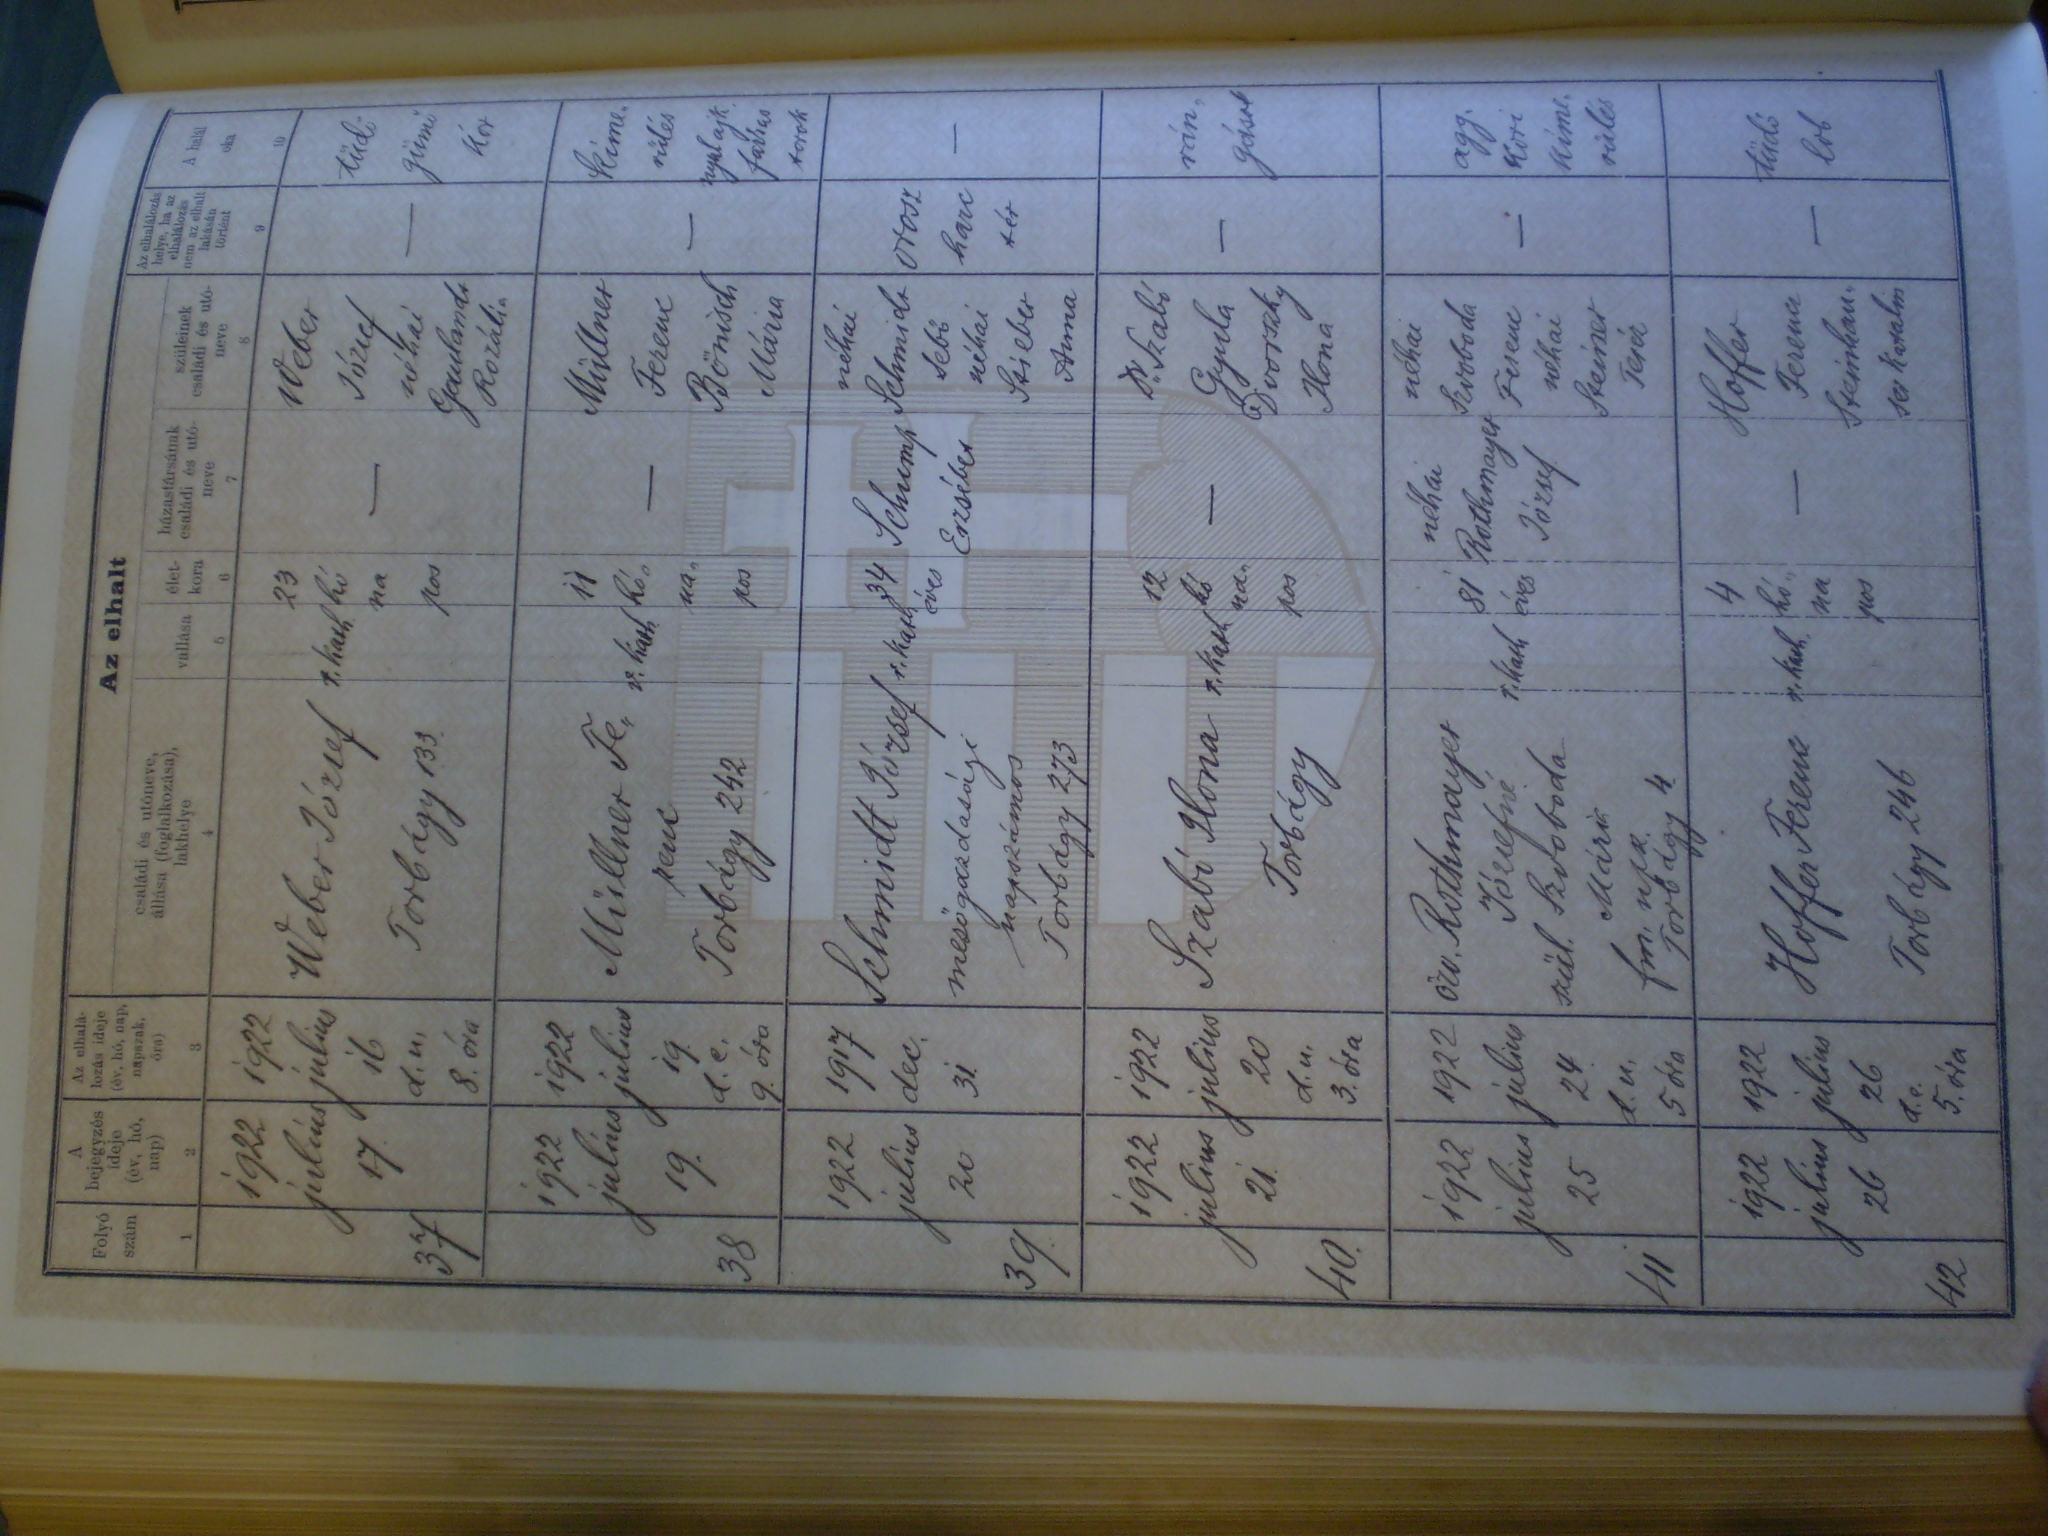 Az elhalt
Folyó
szám
A
bejegyzés
ideje
(év, hó,
nap)
Az elhalá-
lozás ideje
(év, hó, nap,
napszak,
óra)
családi és utóneve,
állása (foglalkozása),
lakhelye
vallása
élet-
kora
házastársának
családi és utó-
neve
szüleinek
családi és utó-
neve
Az elhalálozás
helye, ha az
elhalálozás
nem az elhalt
lakásán
történt
A halál
oka
1
2
3
4
5
6
7
8
9
10
37
1922
július
17.
1922
július
16
d.u.
8. óra
Weber József
Torbágy 133.
r. kath.
23
hó
na
pos
—
Weber
József
néhai
Rozáli„
—
tüdő
gümő
kór
38
1922
július
19.
1922
július
19.
d.e.
9. óra
Müllner Fe„
renc
Torbágy 242
r. kath.
11
hó„
na„
pos
—
Müllner
Ferenc
Bönisch
Mária
—
kime„
rülés
torok
39.
1922
július
20
1917
dec.
31.
Schmidt József
mezőgazdasági
napszámos
Torbágy 273
r. kath.
34
éves
Schump
Erzsébet
néhai
Schmidt
Sebő
néhai
Stieber
Anna
orosz
harc
tér
—
40.
1922
július
21.
1922
július
20
d.u.
3. óra
Szabó Ilona
Torbágy
r. kath
12
hó
na„
pos
—
Szabó
Gyula
Dvorszky
Ilona
—
rán„
gások
41
1922
július
25
1922
július
24.
d.u.
5 óra
özv. Rothmayer
Józsefné
szül. Szvoboda
Mária
fm. nsz.
Torbágy 4.
r. kath
81
éves
néhai
Rothmayer
József
néhai
Szvoboda
Ferenc
néhai
Steiner
Teréz
—
agg„
kori
kime„
rülés
42
1922
július
26
1922
július
26
d.e.
5. óra
Hoffer Ferenc
Torbágy 246
r. kath.
4
hó„
na
pos
—
Hoffer
Ferenc
Steinhau„
ser Katalin
—
tüdő
lob